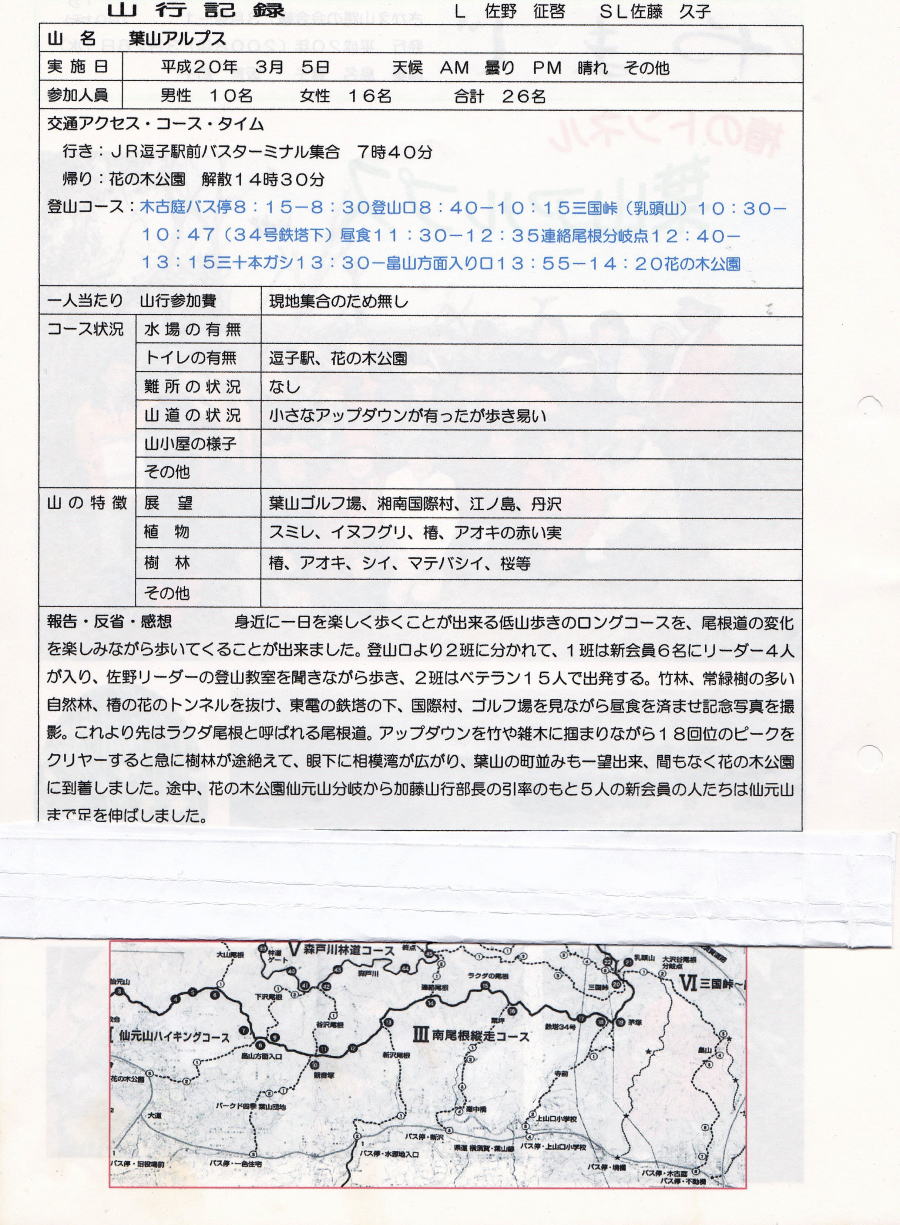 山行記録　L 佐野 征啓　SL佐藤 久子
山 名　葉山アルプス
実 施 日　平成20年 3月 5日　天候 AM 曇り PM 晴れ その他
参加人員　男性 10名　女性 16名　合計 26名
交通アクセス・コース・タイム
行き：JR逗子駅前バスターミナル集合 7時40分
帰り：花の木公園 解散14時30分
登山コース：木古庭バス停8：15－8：30登山口8：40－10：15三国峠（乳頭山）10：30－
10：47（34号鉄塔下）昼食11：30－12：35連絡尾根分岐点12：40－
13：15三十本ガシ13：30－畠山方面入り口13：55－14：20花の木公園
一人当たり 山行参加費　現地集合のため無し
コース状況　水 場 の 有 無
トイレの有無　逗子駅、花の木公園
難 所 の 状 況　なし
山 道 の 状 況　小さなアップダウンが有ったが歩き易い
山小屋の様子
その他
山 の 特 徴　展 望　葉山ゴルフ場、湘南国際村、江ノ島、丹沢
植 物　スミレ、イヌフグリ、椿、アオキの赤い実
樹 林　椿、アオキ、シイ、マテバシイ、桜等
その他
報告・反省・感想　身近に一日を楽しく歩くことが出来る低山歩きのロングコースを、尾根道の変化
を楽しみながら歩いてくることが出来ました。登山口より2班に分かれて、1班は新会員6名にリーダー4人
が入り、佐野リーダーの登山教室を聞きながら歩き、2班はベテラン15人で出発する。竹林、常緑樹の多い
自然林、椿の花のトンネルを抜け、東電の鉄塔の下、国際村、ゴルフ場を見ながら昼食を済ませ記念写真を撮
影。これより先はラクダ尾根と呼ばれる尾根道。アップダウンを竹や雑木に掴まりながら18回位のピークを
クリヤーすると急に樹林が途絶えて、眼下に相模湾が広がり、葉山の町並みも一望出来、間もなく花の木公園
に到着しました。途中、花の木公園仙元山分岐から加藤山行部長の引率のもと5人の新会員の人たちは仙元山
まで足を伸ばしました。
大山尾根
林道ゲート
Ⅴ 森戸川林道コース
森戸川
ラクダの尾根
乳頭山
大沢谷尾根分岐点
三国峠
Ⅵ 三国峠～
仙元山
下沢尾根
連絡尾根
谷沢尾根
茅塚
鉄塔34号
仙元山ハイキングコース
Ⅲ 南尾根縦走コース
畠山方面入口
新沢尾根
観音塚
畠山
花の木公園
寺前
パークド四季 葉山団地
大道
滝中橋
上山口小学校
バス停・新沢
県道 横須賀・葉山線
バス停・上山口小学校
バス停・旧役場前
バス停・一色住宅
バス停・水源地入口
バス停・木古庭
バス停・不動橋